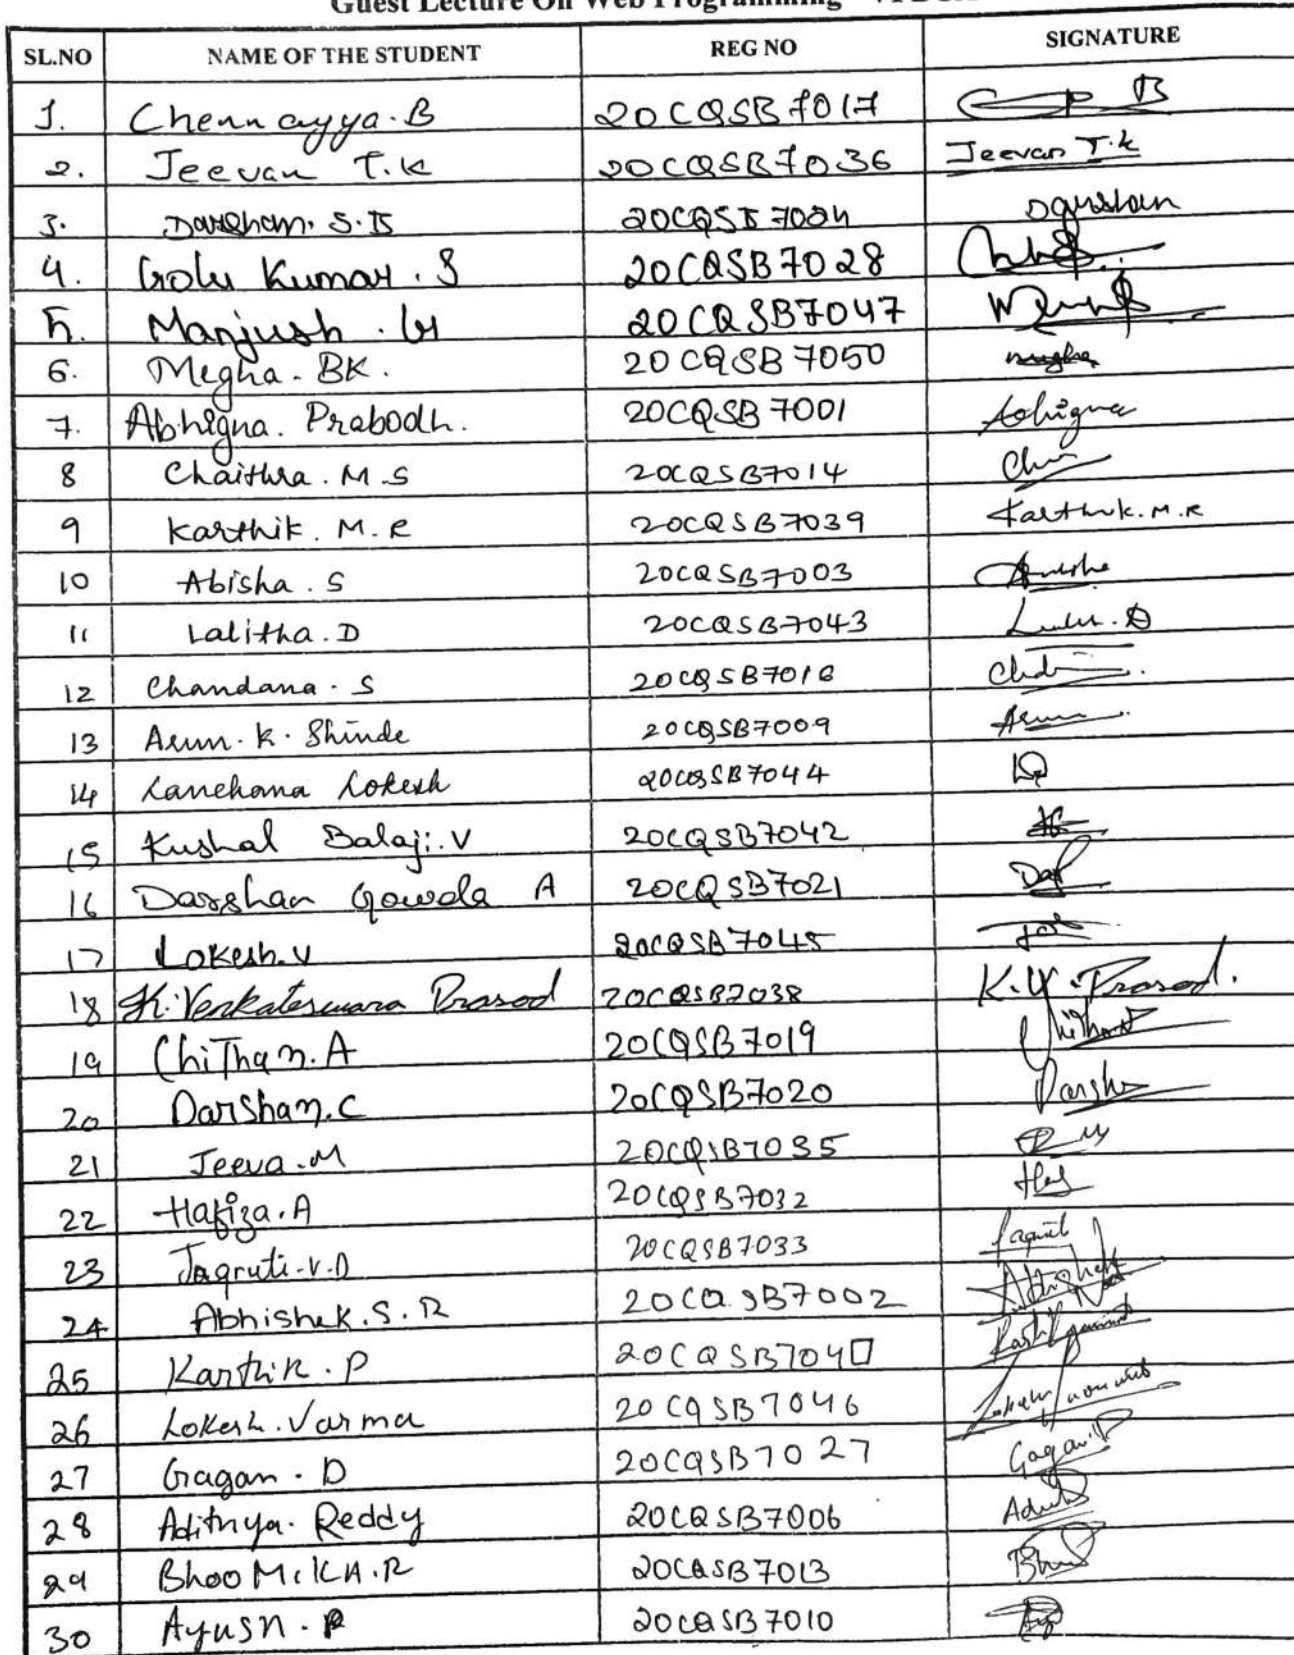 Guest Lecture On Web Programming
SL.NO NAME OF THE STUDENT REG NO SIGNATURE
1. Chennayya.B 20CQSB7017 B
2. Jeevan T.K 20CQSB7036 Jeevan T.K
3. Darshan. S.B 20CQSB7024 Darshan
4. Golu Kumar. S 20CQSB7028
5. Manjush . M 20CQSB7047
6. Megha. BK. 20CQSB7050 megha
7. Abhigna. Prabodh. 20CQSB7001 Abhigna
8 Chaithra. M.S 20CQSB7014
9 Karthik. M.R 20CQSB7039 Karthik.M.R
10 Abisha. S 20CQSB7003
11 Lalitha. D 20CQSB7043
12 Chandana. S 20CQSB7016
13 Arun. K. Shinde 20CQSB7009 Arun
14 Lanchana Lokesh 20CQSB7044
15 Kushal Balaji.V 20CQSB7042
16 Darshan Gowda A 20CQSB7021
17 Lokesh.V 20CQSB7045
18 K.Venkateswara Prasad 20CQSB7038 K.V.Prasad.
19 Chithan.A 20CQSB7019
20 Darshan.C 20CQSB7020 Darsh
21 Jeeva.M 20CQSB7035
22 Hafiza.A 20CQSB7032
23 Jagruti.V.D 20CQSB7033
24 Abhishek.S.R 20CQSB7002 Abhishek
25 Karthik.P 20CQSB7040
26 Lokesh.Varma 20CQSB7046
27 Gagan. D 20CQSB7027 Gagan.D
28 Adithya. Reddy 20CQSB7006
29 BhooMiKA.R 20CQSB7013
30 Ayush. P 20CQSB7010